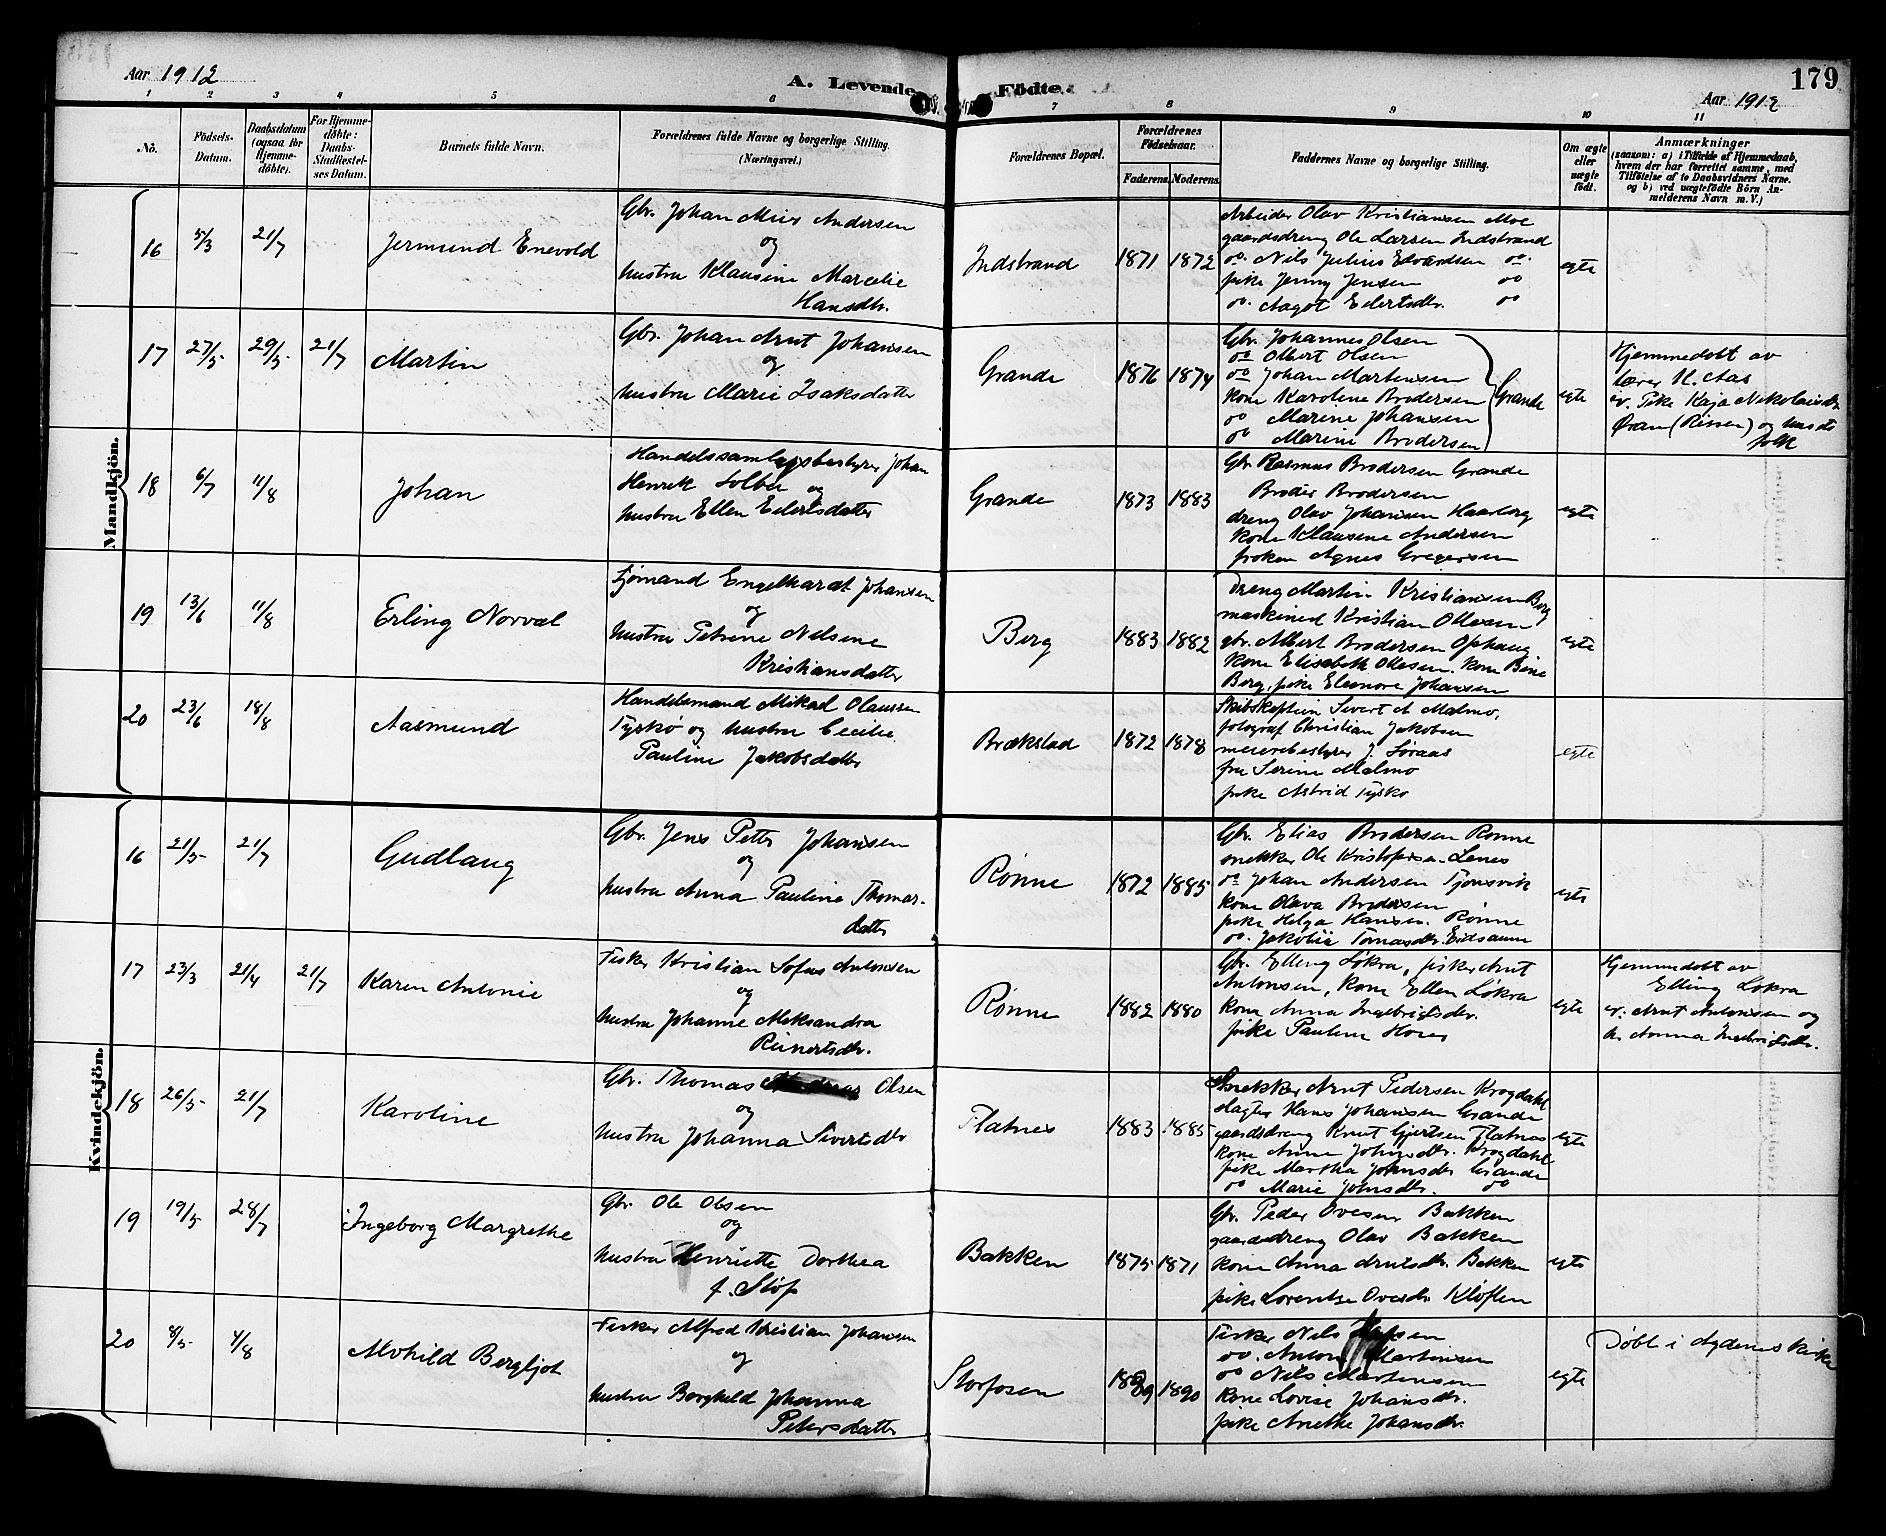 Aar 1912
A. Levende Födte.
Aar 1912
179
1 2 3 4 5 6 7 8 9 10 11
No.
Födsels-Datum.
Daabsdatum (ogsaa for Hjemme-döbte).
For Hjemme-döbte: Daabs-Stadfæstel-ses Datum.
Barnets fulde Navn.
Forældrenes fulde Navne og borgerlige Stilling.
(Næringsvei.)
Forældrenes Bopæl.
Forældrenes Födselsaar.
Faderens. Moderens.
Faddernes Navne og borgerlige Stilling.
Om ægte eller uægte födt.
Anmærkninger
(saasom: a) i Tilfælde af Hjemmedaab,
hvem der har forrettet samme, med
Tilföielse af to Daabsvidners Navne.
og b) ved uægtefödte Börn An-
melderens Navn m. V.)
Mandkjön.
16 5/3 21/7 Jermund Enevold
Gbr. Johan Mier Andersen
og
hustru Klausine Marcelie
Hansdtr.
Indstrand 1871 1872
Arbeider Olav Kristiansen Moe
gaardsdreng Ole Larsen Indstrand
do. Nils Julius Edvardsen do.
pike Jenny Jensen do
do. Aagot Eilertsdtr. do
egte
17 27/5 29/5 21/7 Martin
Gbr. Johan Arnt Johansen
og
hustru Marie Isaksdatter
Grande 1876 1874
Gbr. Johannes Olsen
do Olbert Olsen
do Johan Martensen
kone Karoline Brodersen
do Marene Johansen
do Marine Brodersen
Grande
egte
Hjemmedøbt av
lærer H. Aas
v. Pike Kaja Nikolaisdtr
Øran (Rissen) og husets
folk
18 6/7 11/8 Johan
Handelssamlagsbestyrer Johan
Henrik Solber og
hustru Ellen Eilertsdatter
Grande 1873 1883
Gbr Rasmus Brodersen Grande
Broder Brodersen
dreng Olav Johansen Haarberg
kone Klausene Andersen
frøken Agnes Gregersen
egte
19 13/6 11/8 Erling Norval
Sjømand Engelhardt Johansen
og
hustru Petrine Nilsine
Kristiansdatter
Berg 1883 1882
Dreng Martin Kristiansen Berg
maskinist Kristian Ollesen
gbr. Albert Brodersen Ophaug
kone Elisabeth Ollesen. kone Bine
Berg, pike Eleonore Johansen
egte
20 23/6 18/8 Aasmund
Handelsmand Mikal Olaussen
Tyskø og hustru Cecilie
Pauline Jakobsdatter
Brækstad 1872 1878
Skibskaptein Sivert A Malmo,
fotograf Christian Jakobsen
meieribestyrer J. Soraas
fru Serine Malmo
pike Astrid Tysko
egte
Kvindekjön.
16 21/5 21/7 Gudlaug
Gbr. Jens Petter Johansen
og
hustru Anna Pauline Thomas-
datter
Rønne 1872 1885
Gbr. Elias Brodersen Rønne
snekker Ole Kristofersen Lenes
do Johan Andersen Tjønsvik
kone Olava Brodersen
pike Helga Hansen. Rønne
do. Jakobie Tomasdtr. Eidsaune
egte
17 23/3 21/4 21/7 Karen Antonie
Fisker Kristian Sofus Antonsen
og
hustru Johanne Aleksandra
Reinertsdtr.
Rønne 1882 1880
Gbr. Elling Løkra, fisker Arnt
Antonsen, kone Ellen Løkra
kone Anna Ingebrigtsdtr.
pike Pauline Hover
egte
Hjemmedøbt av
Elling Løkra
v. Arnt Antonsen og
h. Anna Ingebrigtsdtr.
18 26/5 21/7 Karoline
Gbr. Thomas Olsen
og
hustru Johanna Sivertsdtr
Flatnes 1883 1885
Snekker Arnt Pedersen Krogdahl
slagter Hans Johansen Grande
gaardsdreng Knut Gjertsen Flatnes
kone Anne Johnsdtr. Krogdahl
pike Martha Johnsdtr Grande
do Marie Johnsdtr. do
egte
19 19/5 28/7 Ingeborg Margrethe
Gbr. Ole Olsen
og
hustru Henriette Dorthea
f. Støp
Bakken 1875 1871
Gbr. Peder Ovesen Bakken
gaardsdreng Olav Bakken
kone Anna Arntsdtr. Bakken
pike Lorentse Ovesdtr Kløften
egte
20 8/5 4/8 Alvhild Bergljot
Fisker Alfred Kristian Johansen
og
hustru Borghild Johanna
Petersdatter
Storfosen 1889 1890
Fisker Nils
do. Anton Martinsen
do Nils Martensen
kone Lovise Johansdtr.
pike Anethe Johansdtr.
egte
Døbt i Agdenes kirke